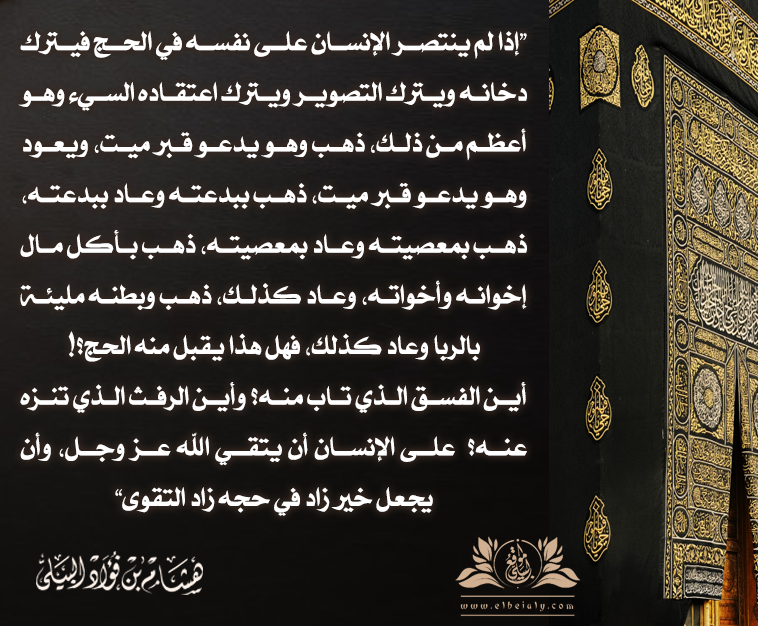 ”إذا لم ينتصر الإنسان على نفسه في الحج فيترك
دخانه ويترك التصوير ويترك اعتقاده السيء وهو
أعظم من ذلك، ذهب وهو يدعو قبر ميت، ويعود
وهو يدعو قبر ميت، ذهب ببدعته وعاد ببدعته،
ذهب بمعصيته وعاد بمعصيته، ذهب بأكل مال
إخوانه وأخواته، وعاد كذلك، ذهب وبطنه مليئة
بالربا وعاد كذلك، فهل هذا يقبل منه الحج؟!
أين الفسق الذي تاب منه؟ وأين الرفث الذي تنزه
عنه؟ على الإنسان أن يتقي الله عز وجل، وأن
يجعل خير زاد في حجه زاد التقوى“
هشام بن فؤاد البيلي
www.elbeialy.com